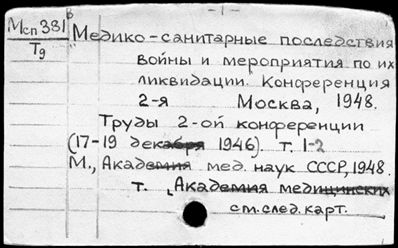 - 1 -
Мсп 381 в
Т9
Медико-санитарные последствия
войны и мероприятия по их
ликвидации. Конференция
2-я Москва, 1948.
Труды 2-ой конференции
(17-19 декабря 1946). т. 1-2
М., Академия мед. наук СССР, 1948.
т. Академия медицинских
см. след. карт.